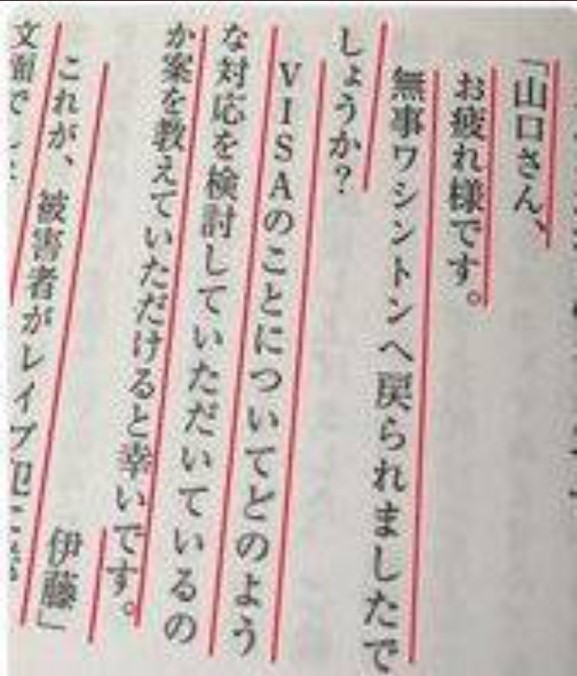 「山口さん、
お疲れ様です。
無事ワシントンへ戻られましたで
しょうか？
VISAのことについてどのよう
な対応を検討していただいているの
か案を教えていただけると幸いです。
伊藤」
これが、被害者がレイプ犯に
文面でし